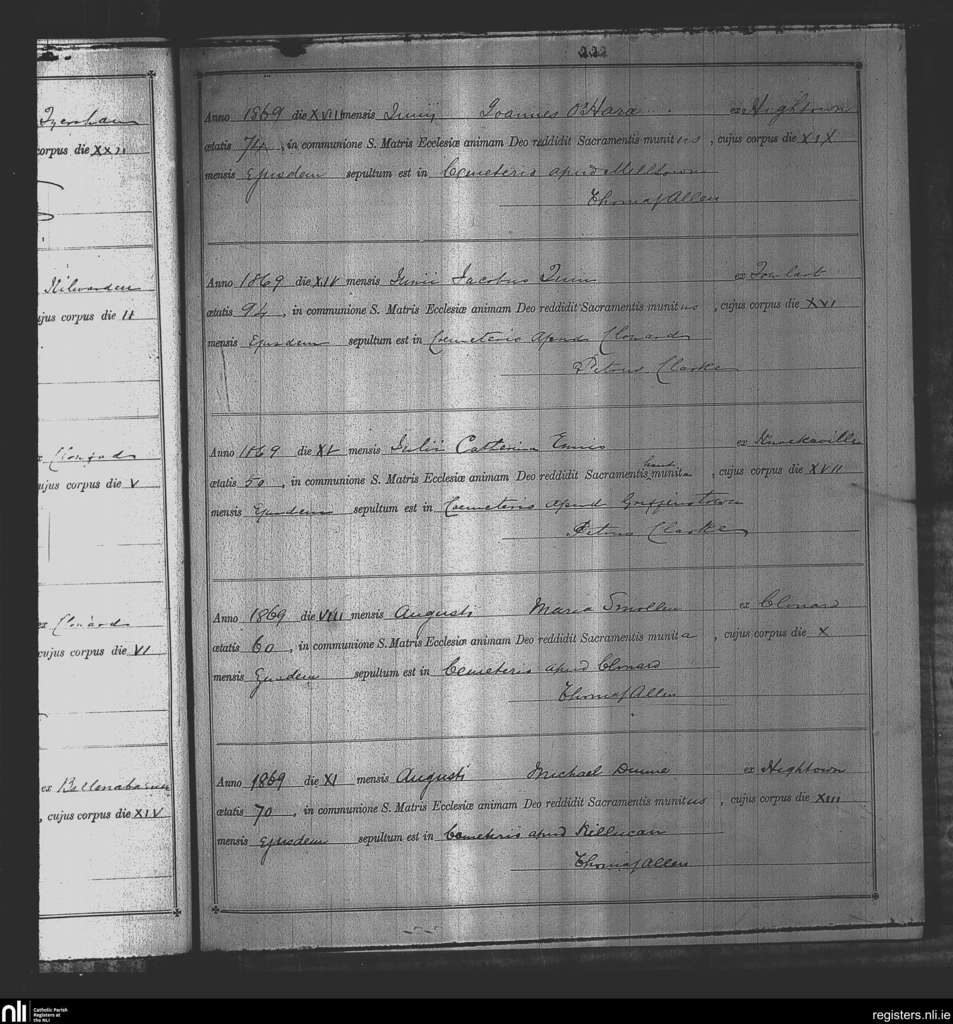 222
ex Tyersham
corpus die XXII
Kilwarden
cujus corpus die II
ex Clonard
cujus corpus die V
ex Clonard
cujus corpus die VI
ex Ballinabarney
, cujus corpus die XIV
Anno 1869 die XVII mensis Junij Joannes O'Hara ex Hightown
ætatis 74, in communione S. Matris Ecclesiæ animam Deo reddidit Sacramentis munitus, cujus corpus die XIX
mensis Ejusdem sepultum est in Cemeterio apud Milltown
Thomas Allen
Anno 1869 die XIV mensis Junii Jacobus Quin ex
ætatis 94, in communione S. Matris Ecclesiæ animam Deo reddidit Sacramentis munitus, cujus corpus die XVI
mensis Ejusdem sepultum est in Coemeterio Apud Clonard
Petrus Clarke
Anno 1869 die XV mensis Julii Catherina Ennis ex Knockaville
ætatis 50, in communione S. Matris Ecclesiæ animam Deo reddidit Sacramentis haud munita, cujus corpus die XVII
mensis Ejusdem sepultum est in Coemeterio apud Griffinstown
Petrus Clarke
Anno 1869 die VIII mensis Augusti Maria Smollen ex Clonard
ætatis 60, in communione S. Matris Ecclesiæ animam Deo reddidit Sacramentis munita, cujus corpus die X
mensis Ejusdem sepultum est in Cemeterio apud Clonard
Thomas Allen
Anno 1869 die XI mensis Augusti Michael Dunne ex Hightown
ætatis 70, in communione S. Matris Ecclesiæ animam Deo reddidit Sacramentis munitus, cujus corpus die XIII
mensis Ejusdem sepultum est in Cemeterio apud Killucan
Thomas Allen
nli Catholic Parish
Registers at
the NLI
registers.nli.ie